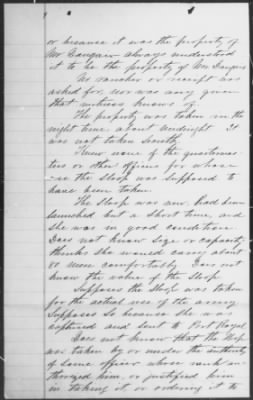 or because it was the property of
Mr Dangan – always understood
it to be the property of Mr Dangan
No voucher or receipt was
asked for, nor was any given
that witness knows of.
The property was taken in the
night time about midnight It
was not taken secretly
Knew none of the quartermas
ters or other officers for whose
use the Sloop was supposed to
have been taken.
The Sloop was new, had been
launched but a short time, and
she was in good condition
Does not know size or capacity
thinks she would carry about
or more comfortably Does not
know the value of the Sloop
Supposes the Sloop was taken
for the actual use of the army
Supposes so because she was
captured and sent to Port Royal
Does not know that the Sloop
was taken by or under the authority
of some officer whose rank au
thorized him, or justified him
in taking it or ordering it to